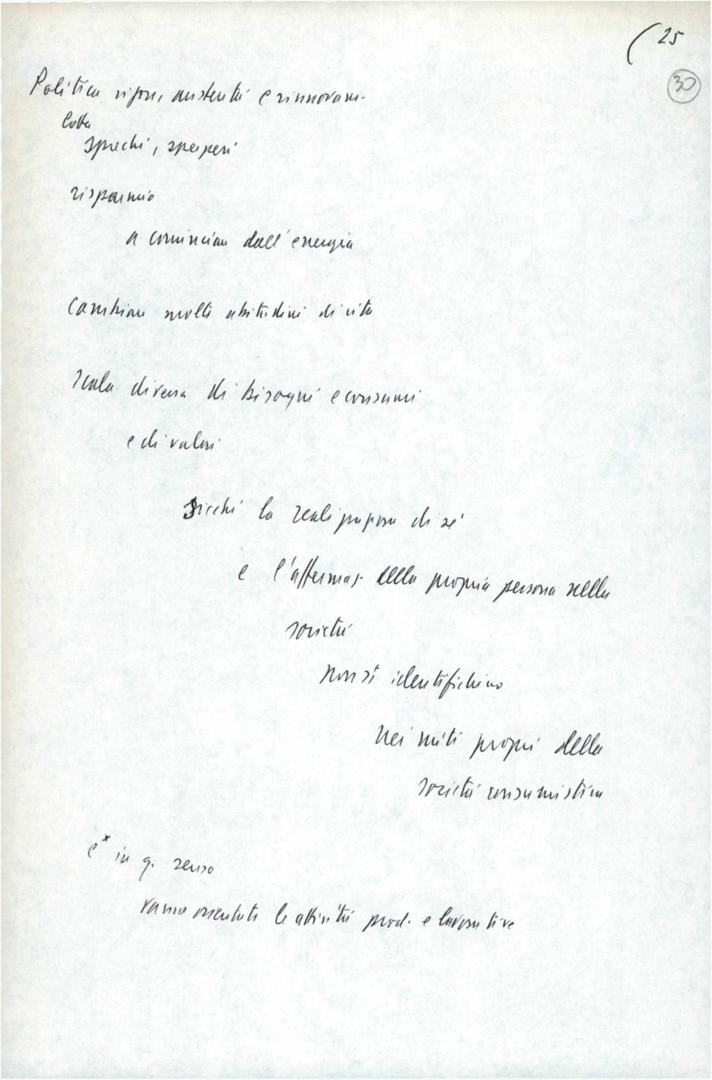 ( 25
30
Politica rigore, austerità e rinnovam.
lotta
sprechi, sperperi
risparmio
a cominciare dall'energia
cambiare molte abitudini di vita
scala diversa di bisogni e consumi
e di valori
sicché la realizzazione di sé
e l'affermaz. della propria persona nella
società
non si identifichino
nei miti propri della
società consumistica
e in q. senso
vanno orientate le attività prod. e lavorative